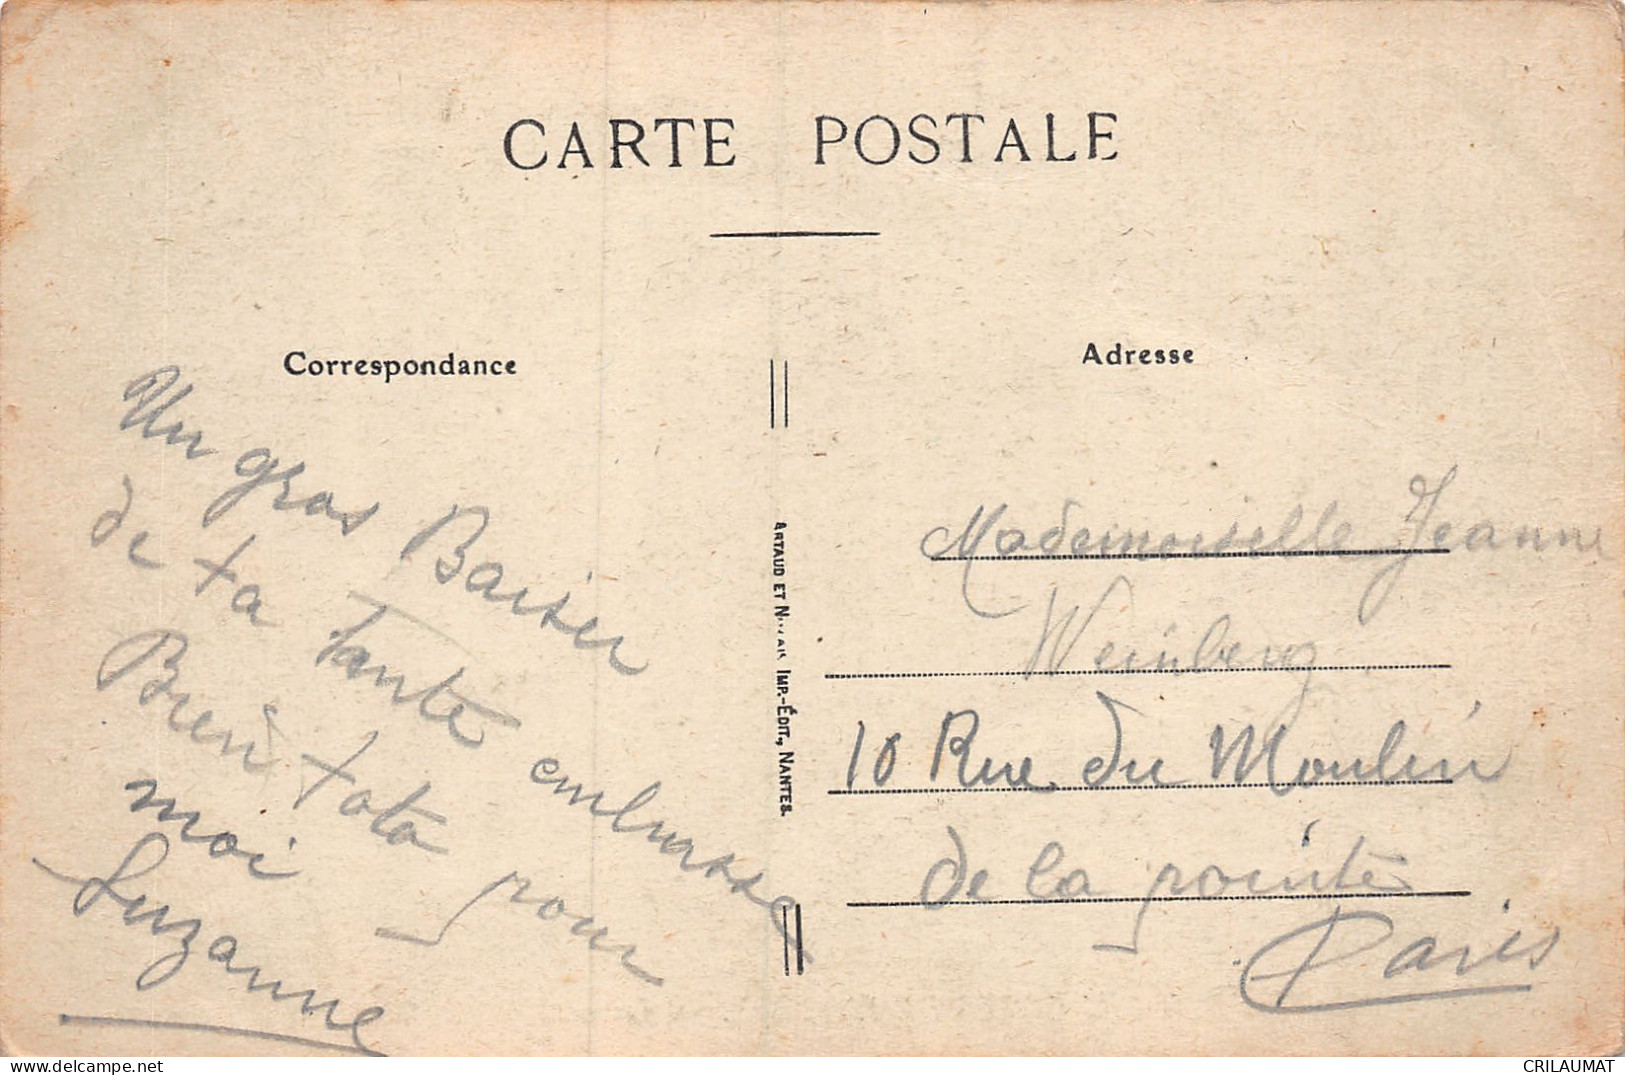 CARTE POSTALE
Correspondance
Un gros Baiser
de ta Tante embrasse
Bien tata pour
moi
Suzanne
ARTAUD ET NOZAIS IMP.-ÉDIT., NANTES.
Adresse
Mademoiselle Jeanne
Weinberg
10 Rue du Moulin
de la pointe
Paris
delcampe.net
CRILAUMAT